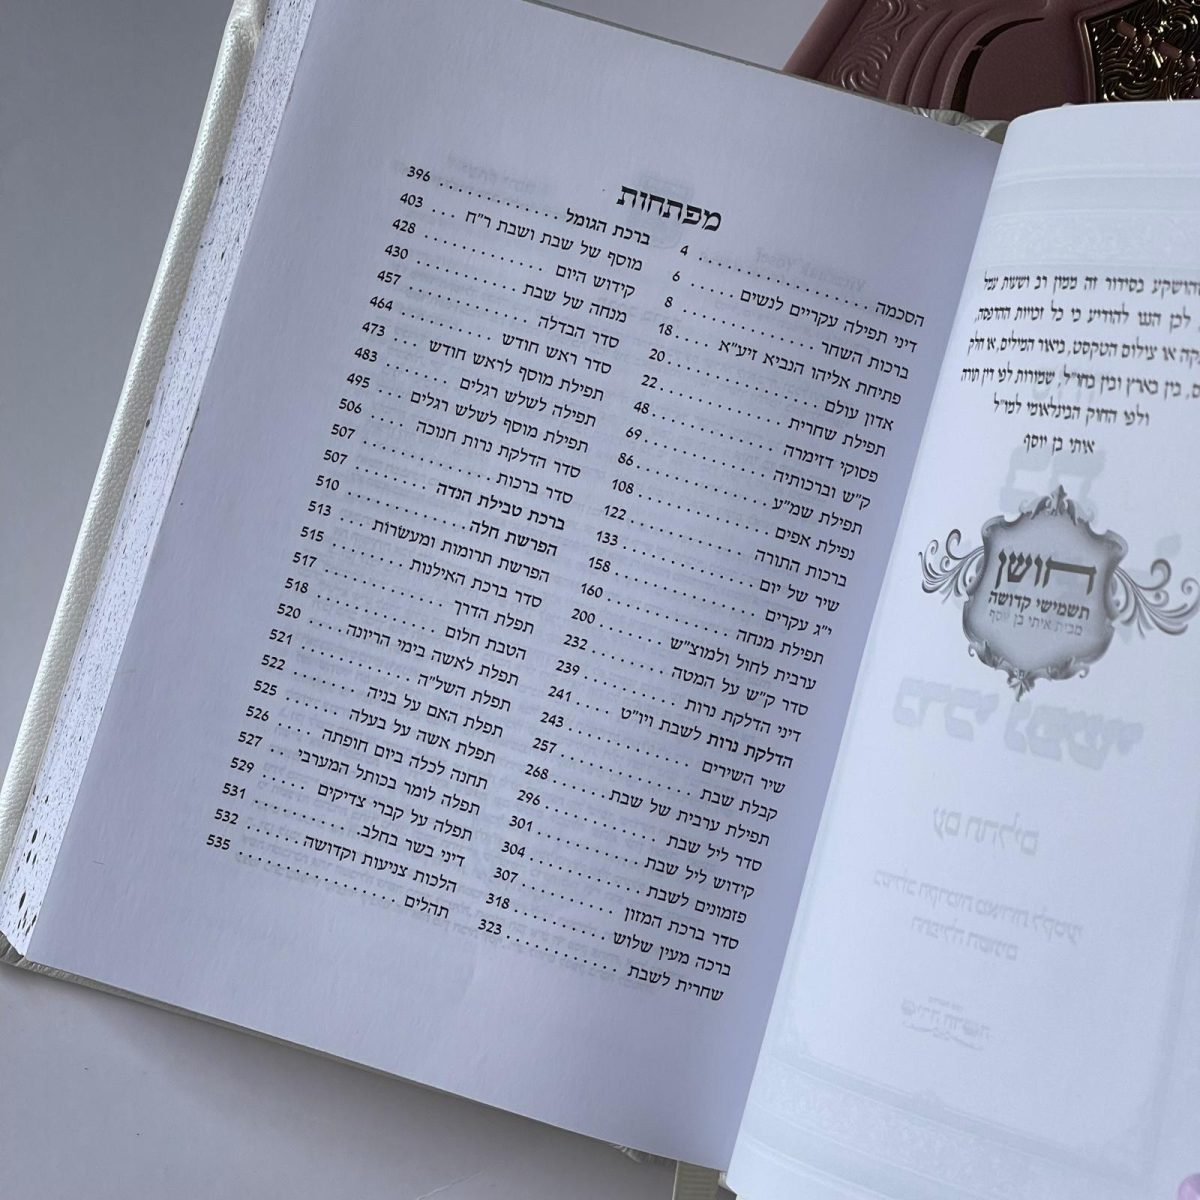 שהושקע בסידור זה ממון רב ושעות עמל
לכן הננו להודיע כי כל זכויות ההדפסה,
או צילום הטקסט, ביאור המילים, או חלק
בין בארץ ובין בחו״ל, שמורות לפי דין תורה
ולפי החוק הבינלאומי למו״ל
איתי בן יוסף
חושן
תשמישי קדושה
מבית איתי בן יוסף
מפתחות
הסכמה . . . . . . . . . . . . . . . 4
דיני תפילה עקריים לנשים . . . . . 6
ברכות השחר . . . . . . . . . . . . 8
פתיחת אליהו הנביא זיע״א . . . . 18
אדון עולם . . . . . . . . . . . . . 20
תפילת שחרית . . . . . . . . . . . 22
פסוקי דזימרה . . . . . . . . . . . 48
ק״ש וברכותיה . . . . . . . . . . . 69
תפילת שמ״ע . . . . . . . . . . . 86
נפילת אפים . . . . . . . . . . . 108
ברכות התורה . . . . . . . . . . 122
שיר של יום . . . . . . . . . . . 133
י״ג עקרים . . . . . . . . . . . . 158
תפילת מנחה . . . . . . . . . . . 160
ערבית לחול ולמוצ״ש . . . . . . 200
סדר ק״ש על המטה . . . . . . . 232
דיני הדלקת נרות . . . . . . . . 239
הדלקת נרות לשבת ויו״ט . . . . 241
שיר השירים . . . . . . . . . . . 243
קבלת שבת . . . . . . . . . . . . 257
תפילת ערבית של שבת . . . . . . 268
סדר ליל שבת . . . . . . . . . . 296
קידוש ליל שבת . . . . . . . . . 301
פזמונים לשבת . . . . . . . . . . 304
סדר ברכת המזון . . . . . . . . . 307
ברכה מעין שלוש . . . . . . . . . 318
שחרית לשבת . . . . . . . . . . . 323
ברכת הגומל . . . . . . . . . . . 396
מוסף של שבת ושבת ר״ח . . . 403
קידוש היום . . . . . . . . . . . 428
מנחה של שבת . . . . . . . . . . 430
סדר הבדלה . . . . . . . . . . . 457
סדר ראש חודש . . . . . . . . . 464
תפילת מוסף לראש חודש . . . 473
תפילה לשלש רגלים . . . . . . . 483
תפילת מוסף לשלש רגלים . . . 495
סדר הדלקת נרות חנוכה . . . . 506
סדר ברכות . . . . . . . . . . . 507
ברכת טבילת הנדה . . . . . . . 507
הפרשת חלה . . . . . . . . . . . 510
הפרשת תרומות ומעשרות . . . . 513
סדר ברכת האילנות . . . . . . . 515
תפלת הדרך . . . . . . . . . . . 517
הטבת חלום . . . . . . . . . . . 518
תפלת לאשה בימי הריונה . . . . 520
תפלת השל״ה . . . . . . . . . . 521
תפלת האם על בניה . . . . . . . 522
תפלת אשה על בעלה . . . . . . 525
תחנה לכלה ביום חופתה . . . . 526
תפלה לומר בכותל המערבי . . . 527
תפלה על קברי צדיקים . . . . . 529
דיני בשר בחלב . . . . . . . . . 531
הלכות צניעות וקדושה . . . . . . 532
תהלים . . . . . . . . . . . . . . 535